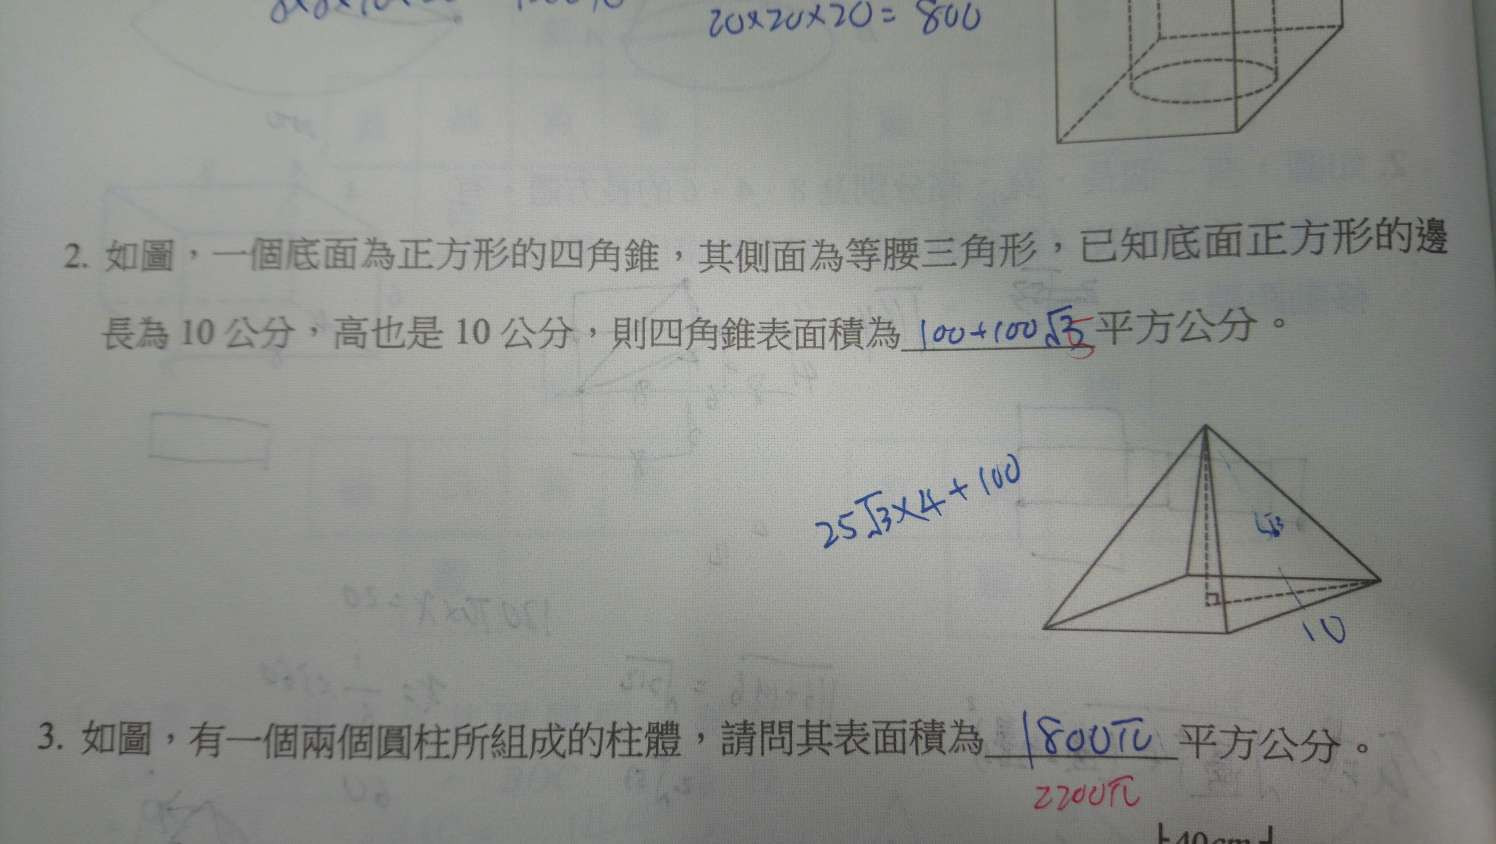 20×20×20=800
2. 如圖，一個底面為正方形的四角錐，其側面為等腰三角形，已知底面正方形的邊
長為 10 公分，高也是 10 公分，則四角錐表面積為 100+100√3 平方公分。
5
25√3×4+100
10
3. 如圖，有一個兩個圓柱所組成的柱體，請問其表面積為 1800π 平方公分。
2200π
40cm